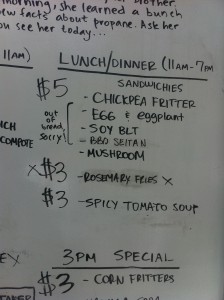 morning, she learned a bunch
new facts about propane. Ask her
you see her today...
11am)
LUNCH/DINNER (11AM-7PM
SANDWICHIES
$5
- CHICKPEA FRITTER
- EGG & eggplant
out of bread, sorry
- SOY BLT
- BBQ SEITAN
- MUSHROOM
COMPOTE
X $3 - ROSEMARY FRIES X
$3 - SPICY TOMATO SOUP
EX
3PM SPECIAL
$3 - CORN FRITTERS